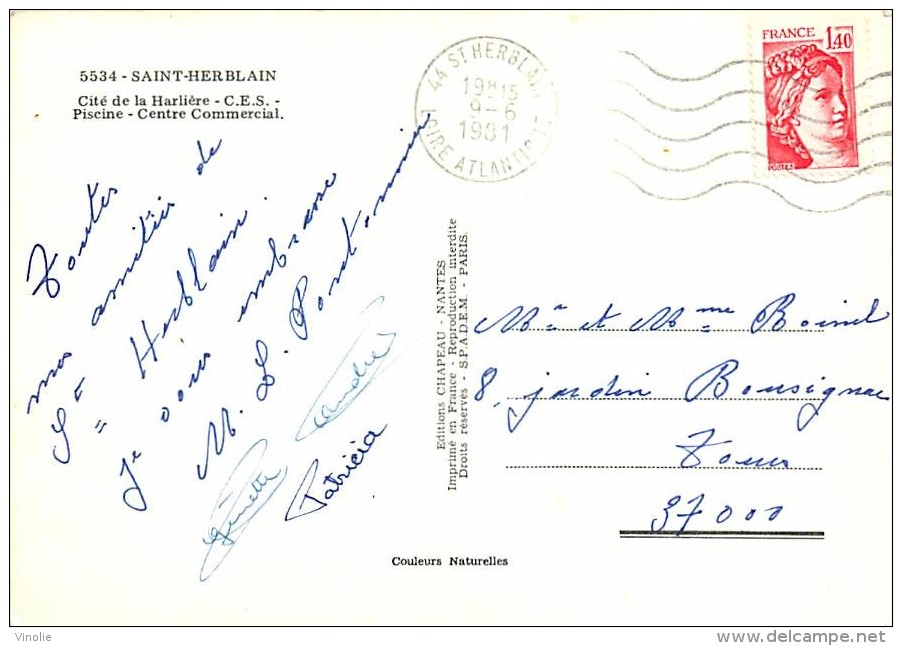 5534 - SAINT-HERBLAIN
Cité de la Harlière - C.E.S. -
Piscine - Centre Commercial.
44 ST HERBLAIN
19H15
9-6
1981
LOIRE ATLANTIQUE
FRANCE 1,40
POSTES
Toutes
mes amitiés de
St Herblain.
Je vous embrasse
M. L.
Ginette
André
Patricia
Editions CHAPEAU - NANTES
Imprimé en France - Reproduction interdite
Droits réservés - S.P.A.D.E.M. - PARIS.
Mr et Mme Boinel
8, jardin Bousignac
Tours
37000
Couleurs Naturelles
Vinolie
delcampe.net